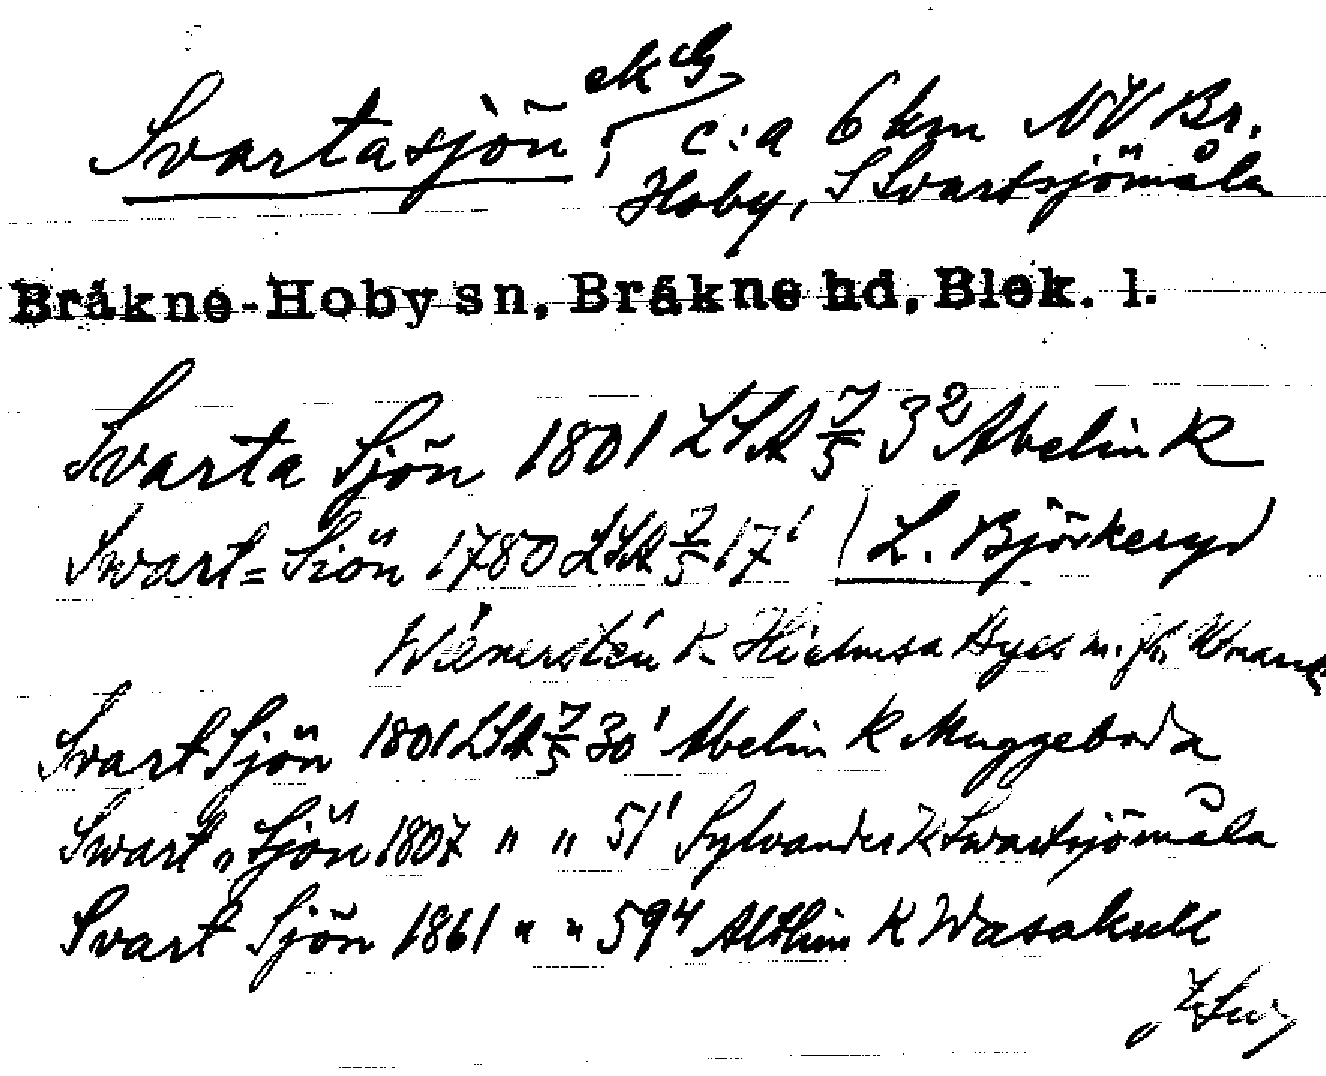 Svartasjön, ek G c:a 6 km NV Br.
Hoby, S Svartsjömåla
Bråkne-Hoby sn, Bråkne hd, Blek. l.
Svarta Sjön 1801 LSA 7/5 3² Abelin K
Swart=Siön 1780 LSA 7/5 17¹ (L. Björkeryd)
Wénerstén K
Svart Sjön 1801 LSA 7/5 30¹ Abelin K Muggeboda
Swart „ Sjön 1807 " " 51¹ Sylvander K Swartsjömåla
Svart Sjön 1861 " " 59⁴ Althin K Wasakull